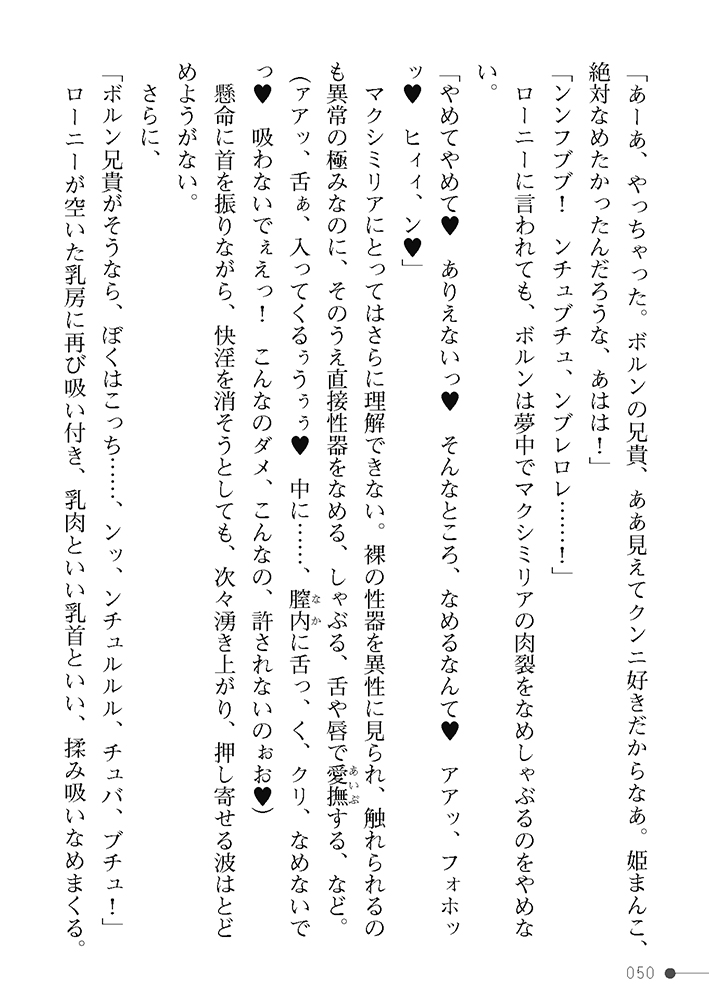 「あーあ、やっちゃった。ボルンの兄貴、ああ見えてクンニ好きだからなあ。姫まんこ、
絶対なめたかったんだろうな、あはは！」
「ンンフブブ！　ンチュブチュ、ンブレロレ……！」
ローニーに言われても、ボルンは夢中でマクシミリアの肉裂をなめしゃぶるのをやめな
い。
「やめてやめて♥　ありえないっ♥　そんなところ、なめるなんて♥　アアッ、フォホッ
ッ♥　ヒィィ、ン♥」
マクシミリアにとってはさらに理解できない。裸の性器を異性に見られ、触れられるの
も異常の極みなのに、そのうえ直接性器をなめる、しゃぶる、舌や唇で愛撫する、など。
あいぶ
（ァアッ、舌ぁ、入ってくるぅうぅぅ♥　中に……、膣内に舌っ、く、クリ、なめないで
なか
っ♥　吸わないでぇえっ！　こんなのダメ、こんなの、許されないのぉお♥）
懸命に首を振りながら、快淫を消そうとしても、次々湧き上がり、押し寄せる波はとど
めようがない。
さらに、
「ボルン兄貴がそうなら、ぼくはこっち……、ンッ、ンチュルルル、チュバ、ブチュ！」
ローニーが空いた乳房に再び吸い付き、乳肉といい乳首といい、揉み吸いなめまくる。
050